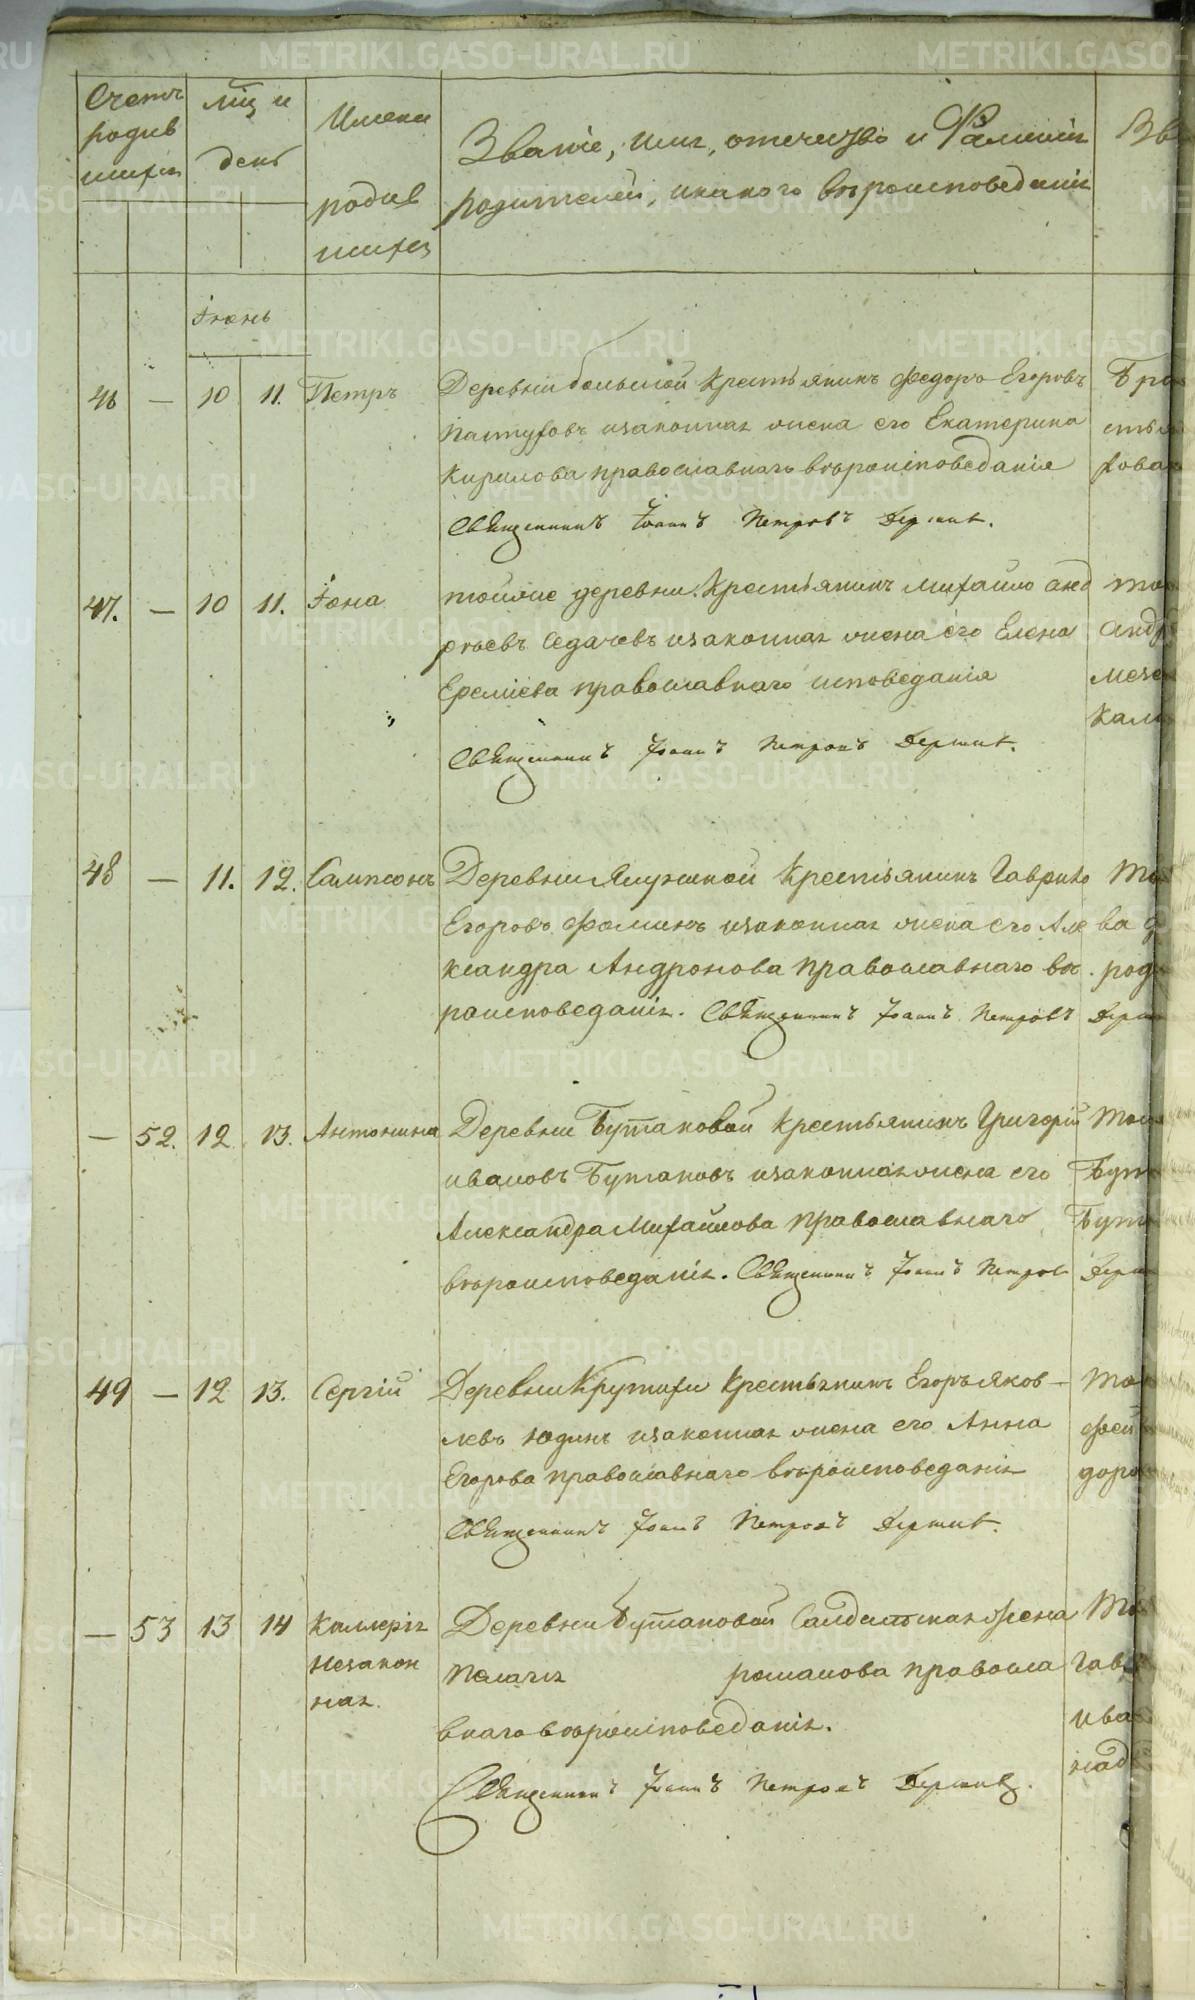 Счетъ
родив
шихся
Мѣс и
день
Имена
родив
шихся
Званіе, имя, отечество и Фамилія
родителей, и какого вѣроисповеданія
Зва
Іюнь
46 — 10 11. Петръ
Деревни большой Крестьянинъ Федоръ Егоровъ
Пастуховъ изаконная жена его Екатерина
Кирилова православнаго вѣроисповеданія
Священникъ Іоаннъ Петровъ
47. — 10 11. Іона
тойже деревни Крестьянинъ Михайло анд
реевъ Седачевъ изаконная жена его Елена
Еремѣева православнаго исповеданія
Священникъ Іоаннъ Петровъ
48 — 11. 12. Сампсонъ
Деревни Крестьянинъ Гаврило
Егоровъ Фоминъ изаконная жена его Але
ксандра Андронова православнаго вѣ
роисповеданія. Священникъ Іоаннъ Петровъ
— 52. 12 13. Антонина
Деревни Бутаковой Крестьянинъ Григорій
ивановъ Бутаковъ изаконная жена его
Александра Михайлова православнаго
вѣроисповеданія. Священникъ Іоаннъ Петров
49 — 12 13. Сергій
Деревни Крутихи Крестьянинъ Егоръ яков
левъ Юдинъ изаконная жена его Анна
Егорова православнаго вѣроисповеданія
Священникъ Іоаннъ Петровъ
— 53 13 14 Каллерія
незакон
ная.
Деревни Бутаковой Салдатская жена
Пелагія романова правосла
внаго вѣроисповеданія.
Священникъ Іоаннъ Петровъ
METRIKI.GASO-URAL.RU